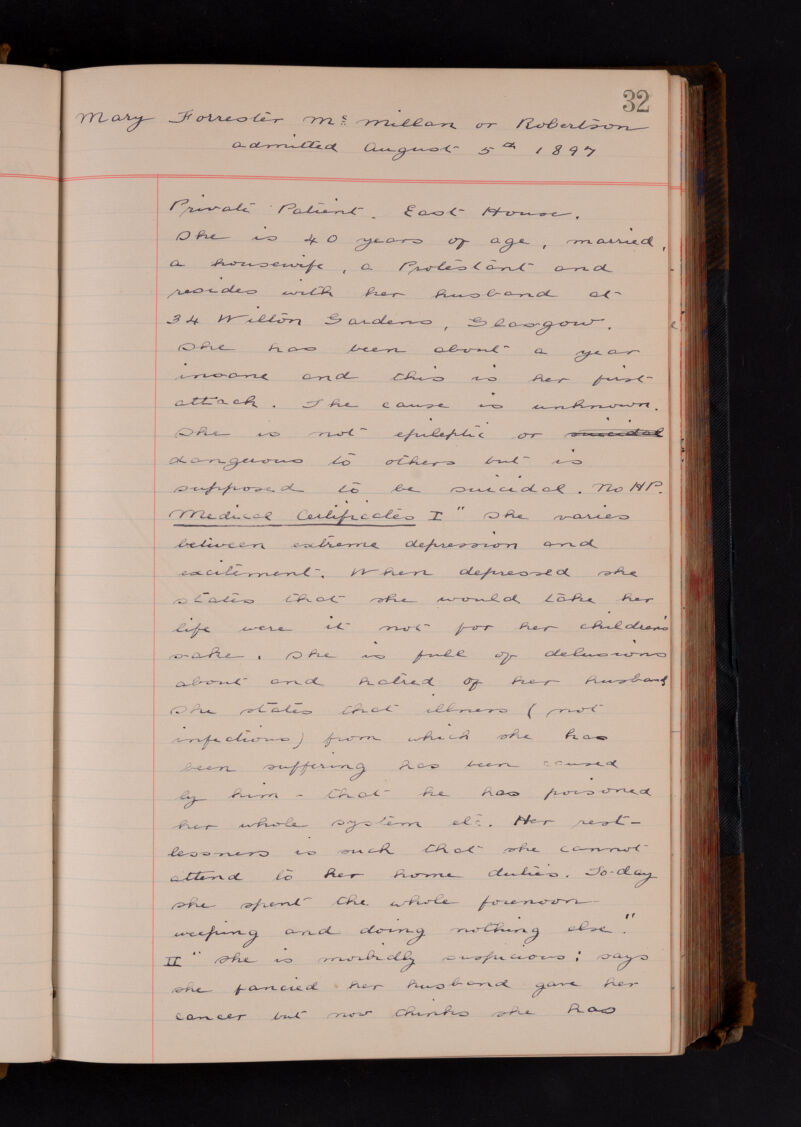 32
Mary Forrester Mc Millan or Robertson
admitted August 5th 1897
Private Patient. East House.
She is 40 years of age, married,
a housewife, a Protestant and
resides with her husband at
34 Wilton Gardens, Glasgow.
She has been about a year
insane and this is her first
attack. The cause is unknown.
She is not epileptic or suicidal
dangerous to others but is
supposed to be suicidal. No HP.
Medical Certificates I " She varies
between extreme depression and
excitement. When depressed she
states that she would take her
life were it not for her children's
sake. She is full of delusions
about and hatred of her husband
She states that illness (not
infectious) from which she has
been suffering has been caused
by him - that he has poisoned
her whole system etc. Her rest-
lessness is such that she cannot
attend to her home duties. To-day
she spent the whole forenoon
weeping and doing nothing else."
II " She is morbidly suspicious; says
she fancied her husband gave her
cancer but now thinks she has